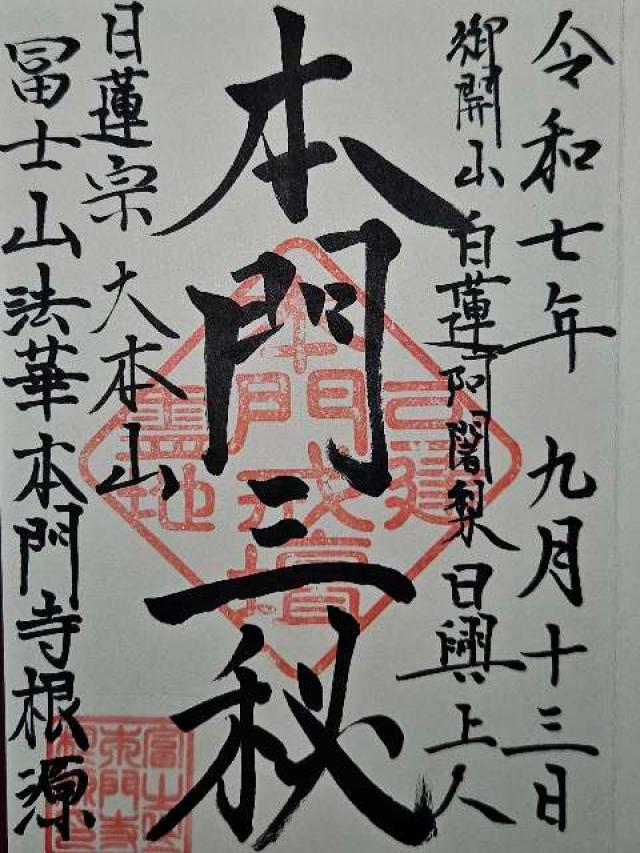 令和七年 九月十三日
御開山 白蓮阿闍梨日興上人
本門三秘
日蓮宗 大本山
冨士山法華本門寺根源
已建
本門戒壇
霊地